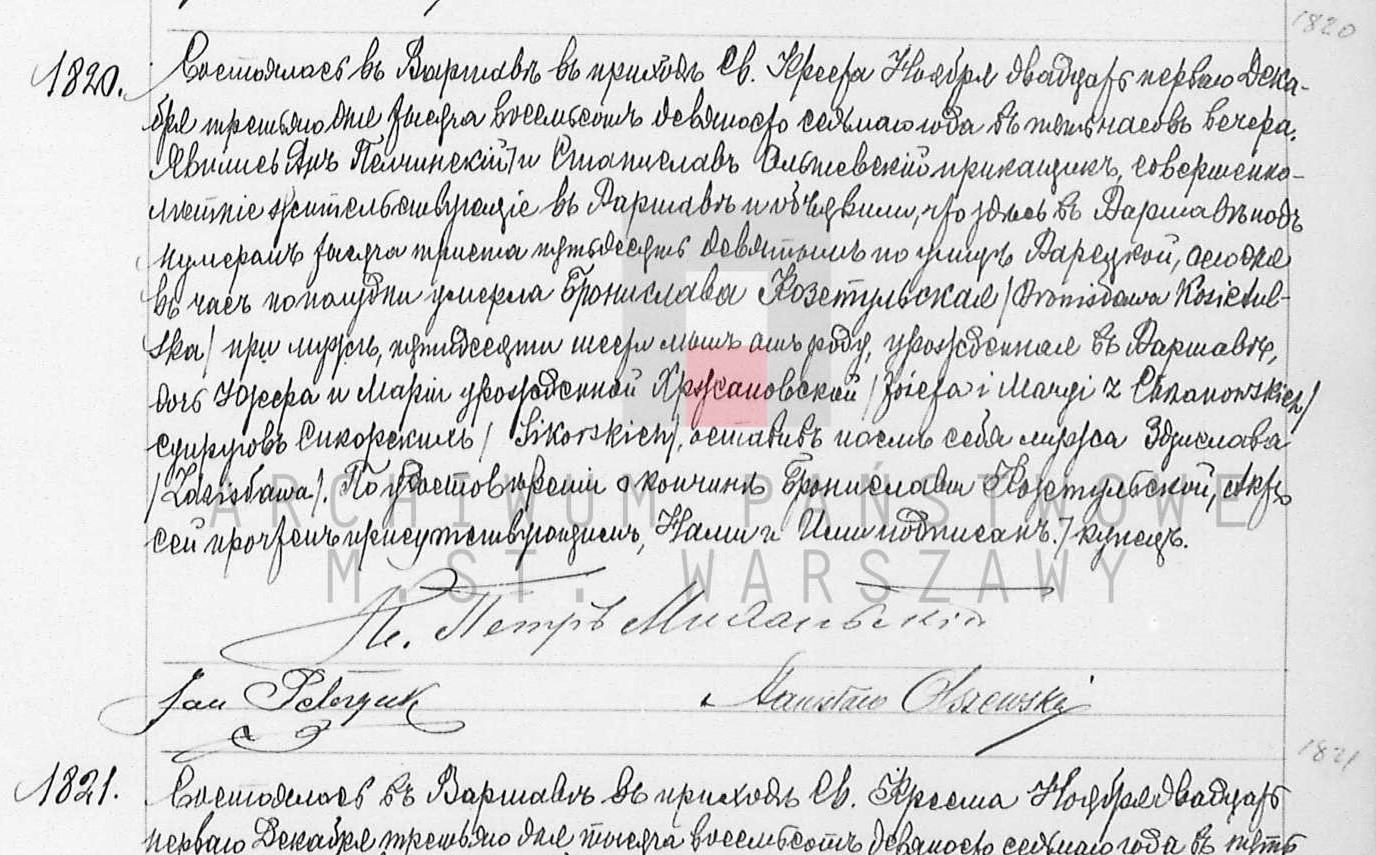 1820
1820. Состоялось въ Варшавѣ въ приходѣ Св. Креста Ноября двадцать перваго Дека-
бря третьяго дня тысяча восемьсотъ девяносто седьмаго года въ пять часовъ вечера.
Явились Янъ Пелчинскій/ и Станиславъ Ольшевскій прикащикъ, совершенно-
лѣтніе жительствующіе въ Варшавѣ и объявили, что здѣсь въ Варшавѣ подъ
нумеромъ тысяча триста пятьдесятъ девятымъ по улицѣ Варецкой, сего дня
въ часъ пополудни умерла Брониславa Козетульская /Bronisława Kozietul-
ska/ при мужѣ, пятидесяти шести лѣтъ отъ роду, урожденная въ Варшавѣ,
дочь Юзефа и Маріи урожденной Хржановской /Józefa i Maryi z Chrzanowskich/
супруговъ Сикорскихъ /Sikorskich/, оставивъ послѣ себя мужа Здислава
/Zdzisława/. По удостовѣреніи о кончинѣ Брониславы Козетульской, Актъ
сей прочтенъ присутствующимъ, Нами и Ими подписанъ. / купецъ.
Кс. Петръ
Jan Stanisław Olszewski
ARCHIWUM PAŃSTWOWE
M.ST. WARSZAWY
1821
1821. Состоялось въ Варшавѣ въ приходѣ Св. Креста Ноября двадцать
перваго Декабря третьяго дня тысяча восемьсотъ девяносто седьмаго года въ пять